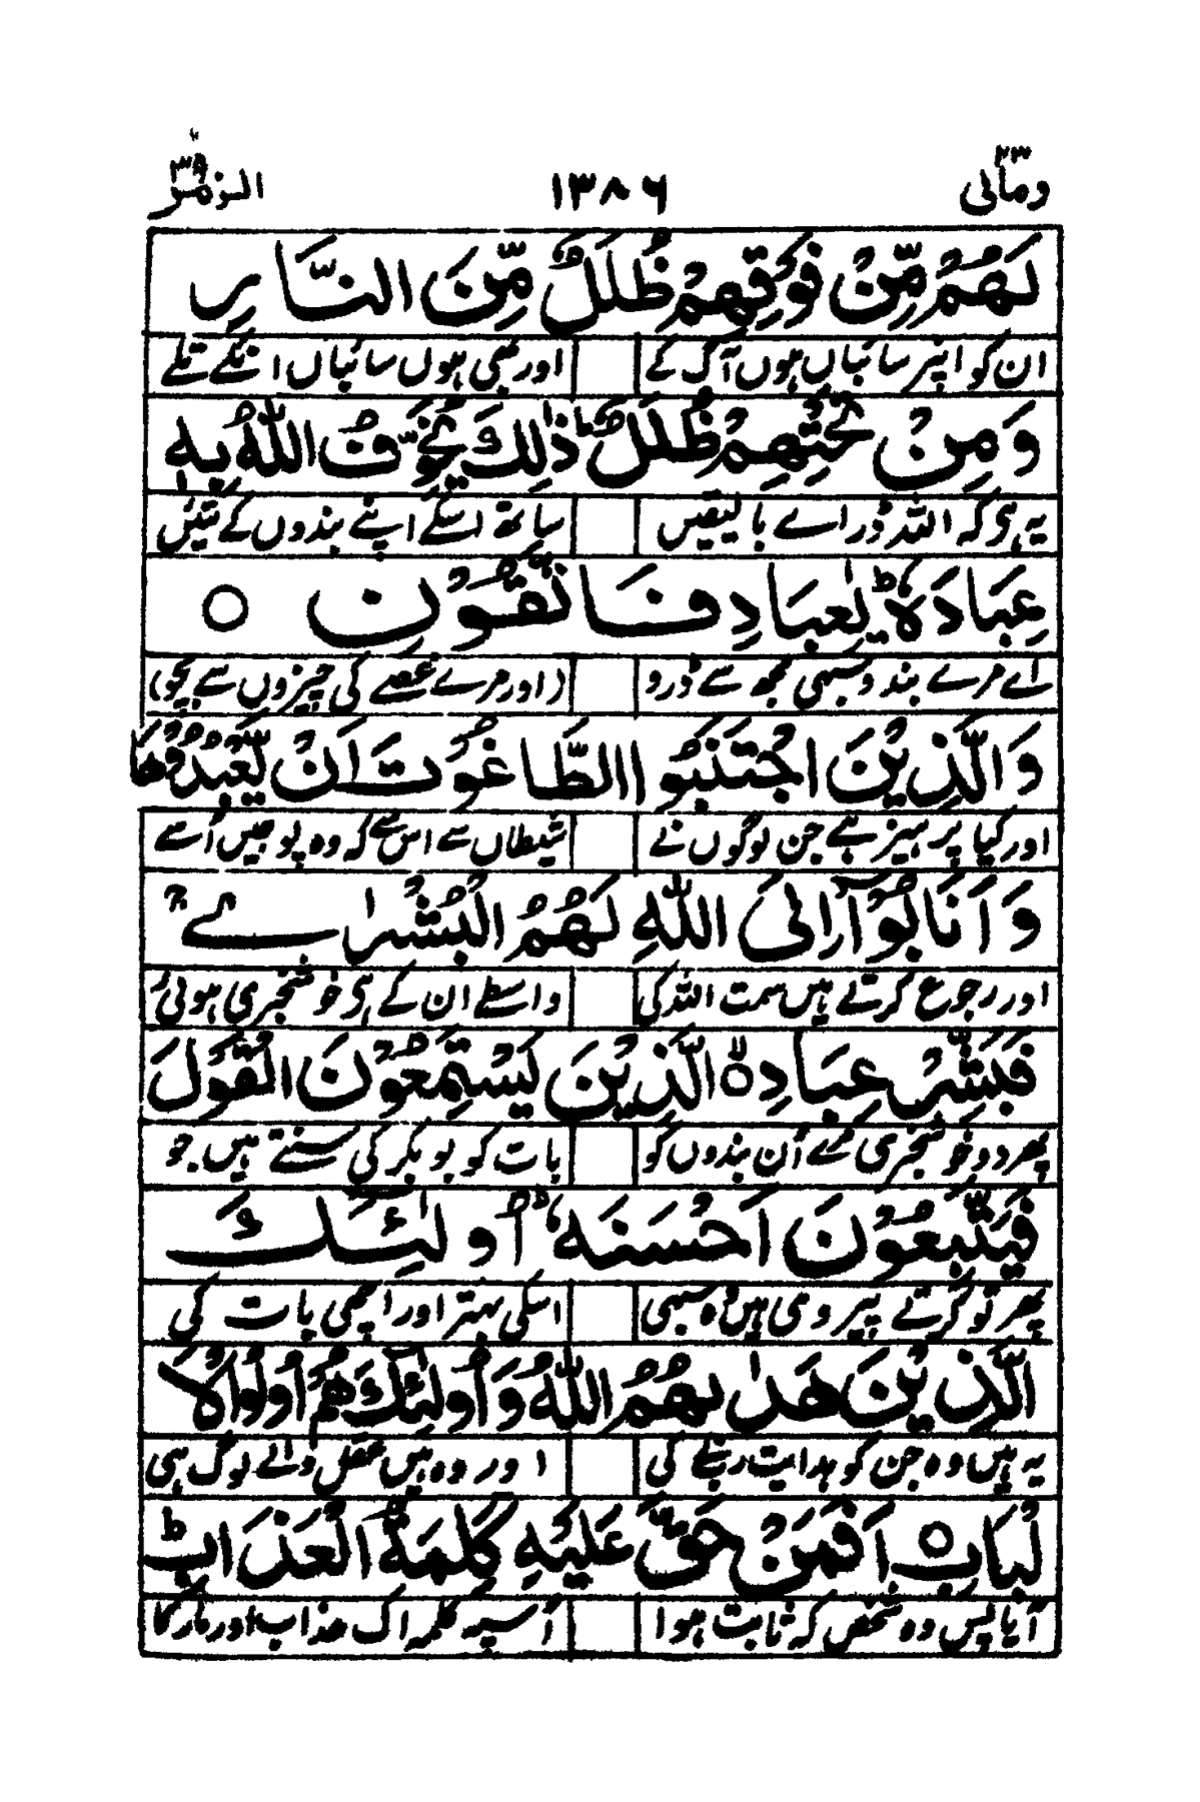 ومالی ٢٣ ١٣٨٦ الزمر ٣٩
لَهُمْ مِّنْ فَوْقِهِمْ ظُلَلٌ مِّنَ النَّارِ
ان کو اپنر سائباں ہوں آگ کے اور بھی ہوں سائباں انکے تلے
وَمِنْ تَحْتِهِمْ ظُلَلٌ ؕ ذٰلِكَ يُخَوِّفُ اللّٰهُ بِهٖ
یہ ہی کہ اللہ ڈراے بالیقیں ساتھ اسکے اپنے بندوں کے تئیں
عِبَادَهٗ ؕ يٰعِبَادِ فَاتَّقُوْنِ ○
اے مرے بندو سبھی مجھ سے ڈرو (اور مرے غصے کی چیزوں سے بچو)
وَالَّذِيْنَ اجْتَنَبُوا الطَّاغُوْتَ اَنْ يَّعْبُدُوْهَا
اور کیا پرہیز ہے جن لوگوں نے شیطاں سے اس سے کہ وہ پوجیں اُسے
وَاَنَابُوْٓا اِلَى اللّٰهِ لَهُمُ الْبُشْرٰے ۚ
اور رجوع کرتے ہیں سمت اللہ کی واسطے ان کے ہی خوشخبری ہوئی
فَبَشِّرْ عِبَادِ ۙ○ الَّذِيْنَ يَسْتَمِعُوْنَ الْقَوْلَ
پھر دو خوشخبری مے اُن بندوں کو بات کو بو بکر کی سنتے ہیں جو
فَيَتَّبِعُوْنَ اَحْسَنَهٗ ؕ اُولٰٓئِكَ
پھر تو کرتے پیروی ہیں وہ سبھی اسکی بہتر اور اچھی بات کی
الَّذِيْنَ هَدٰىهُمُ اللّٰهُ وَاُولٰٓئِكَ هُمْ اُولُوا الْاَ
یہ ہیں وہ جن کو ہدایت ربنے کی اور وہ ہیں عقل والے لوگ ہی
لْبَابِ ○ اَفَمَنْ حَقَّ عَلَيْهِ كَلِمَةُ الْعَذَابِ ؕ
آیا پس وہ شخص کہ ثابت ہوا اُسپہ کلمہ اک عذاب اور مار کا